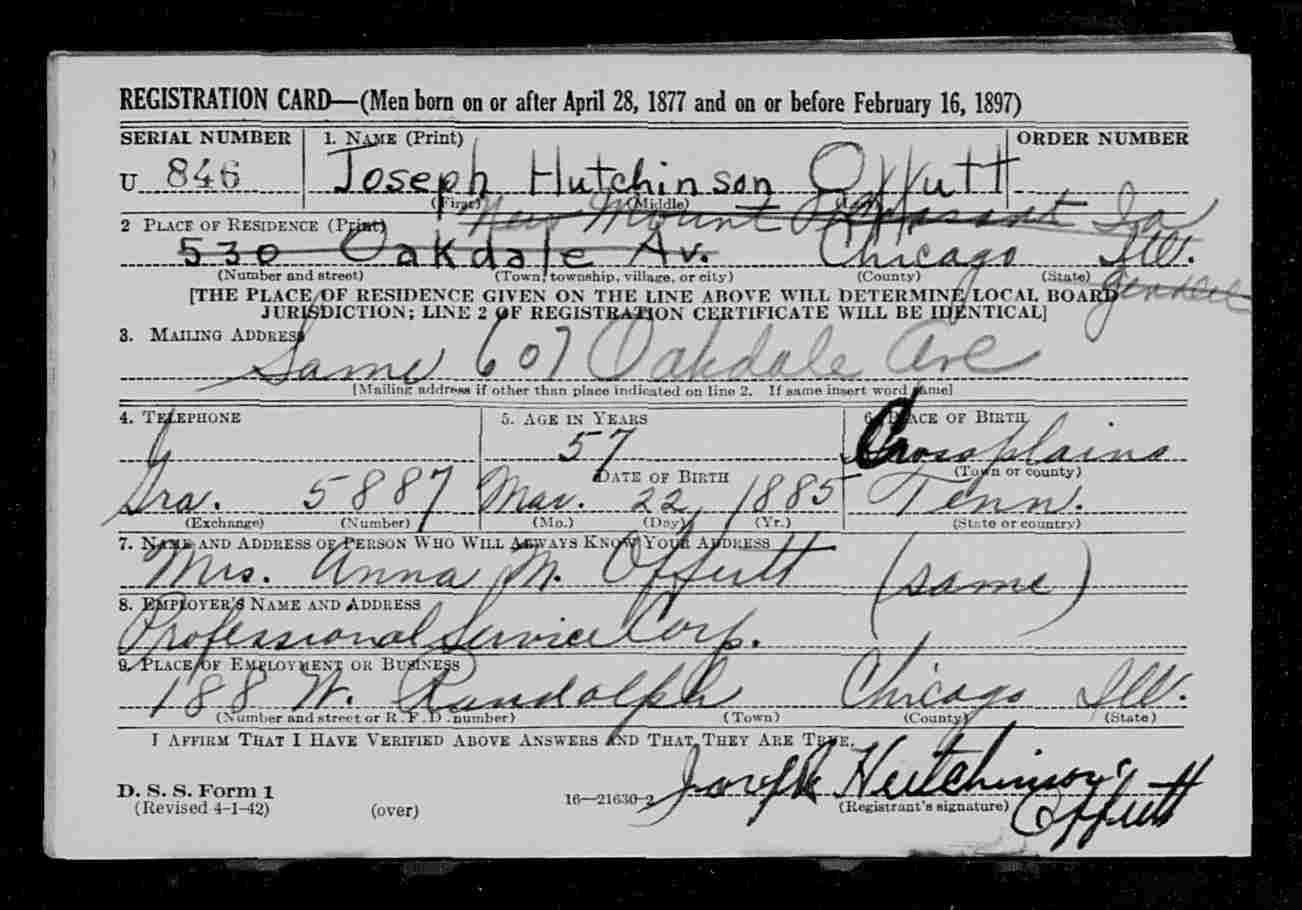 REGISTRATION CARD—(Men born on or after April 28, 1877 and on or before February 16, 1897)
SERIAL NUMBER 1. NAME (Print) ORDER NUMBER
U 846 Joseph Hutchinson Offutt
(First) (Middle)
New Mount Pleasant Ia
2 PLACE OF RESIDENCE (Print)
530 Oakdale Av. Chicago Ill.
(Number and street) (Town, township, village, or city) (County) (State)
[THE PLACE OF RESIDENCE GIVEN ON THE LINE ABOVE WILL DETERMINE LOCAL BOARD
JURISDICTION; LINE 2 OF REGISTRATION CERTIFICATE WILL BE IDENTICAL]
3. MAILING ADDRESS
Same 607 Oakdale Ave
[Mailing address if other than place indicated on line 2. If same insert word same]
4. TELEPHONE 5. AGE IN YEARS 6. PLACE OF BIRTH
57 Crossplains
DATE OF BIRTH (Town or county)
Gra. 5887 Mar. 22 1885 Tenn.
(Exchange) (Number) (Mo.) (Day) (Yr.) (State or country)
7. NAME AND ADDRESS OF PERSON WHO WILL ALWAYS KNOW YOUR ADDRESS
Mrs. Anna M. Offutt (same)
8. EMPLOYER'S NAME AND ADDRESS
Professional Service Corp.
9. PLACE OF EMPLOYMENT OR BUSINESS
188 W. Randolph Chicago Ill.
(Number and street or R. F. D. number) (Town) (County) (State)
I AFFIRM THAT I HAVE VERIFIED ABOVE ANSWERS AND THAT THEY ARE TRUE.
Joseph Hutchinson Offutt
D. S. S. Form 1
(Revised 4-1-42) (over) 16—21630-2 (Registrant's signature)